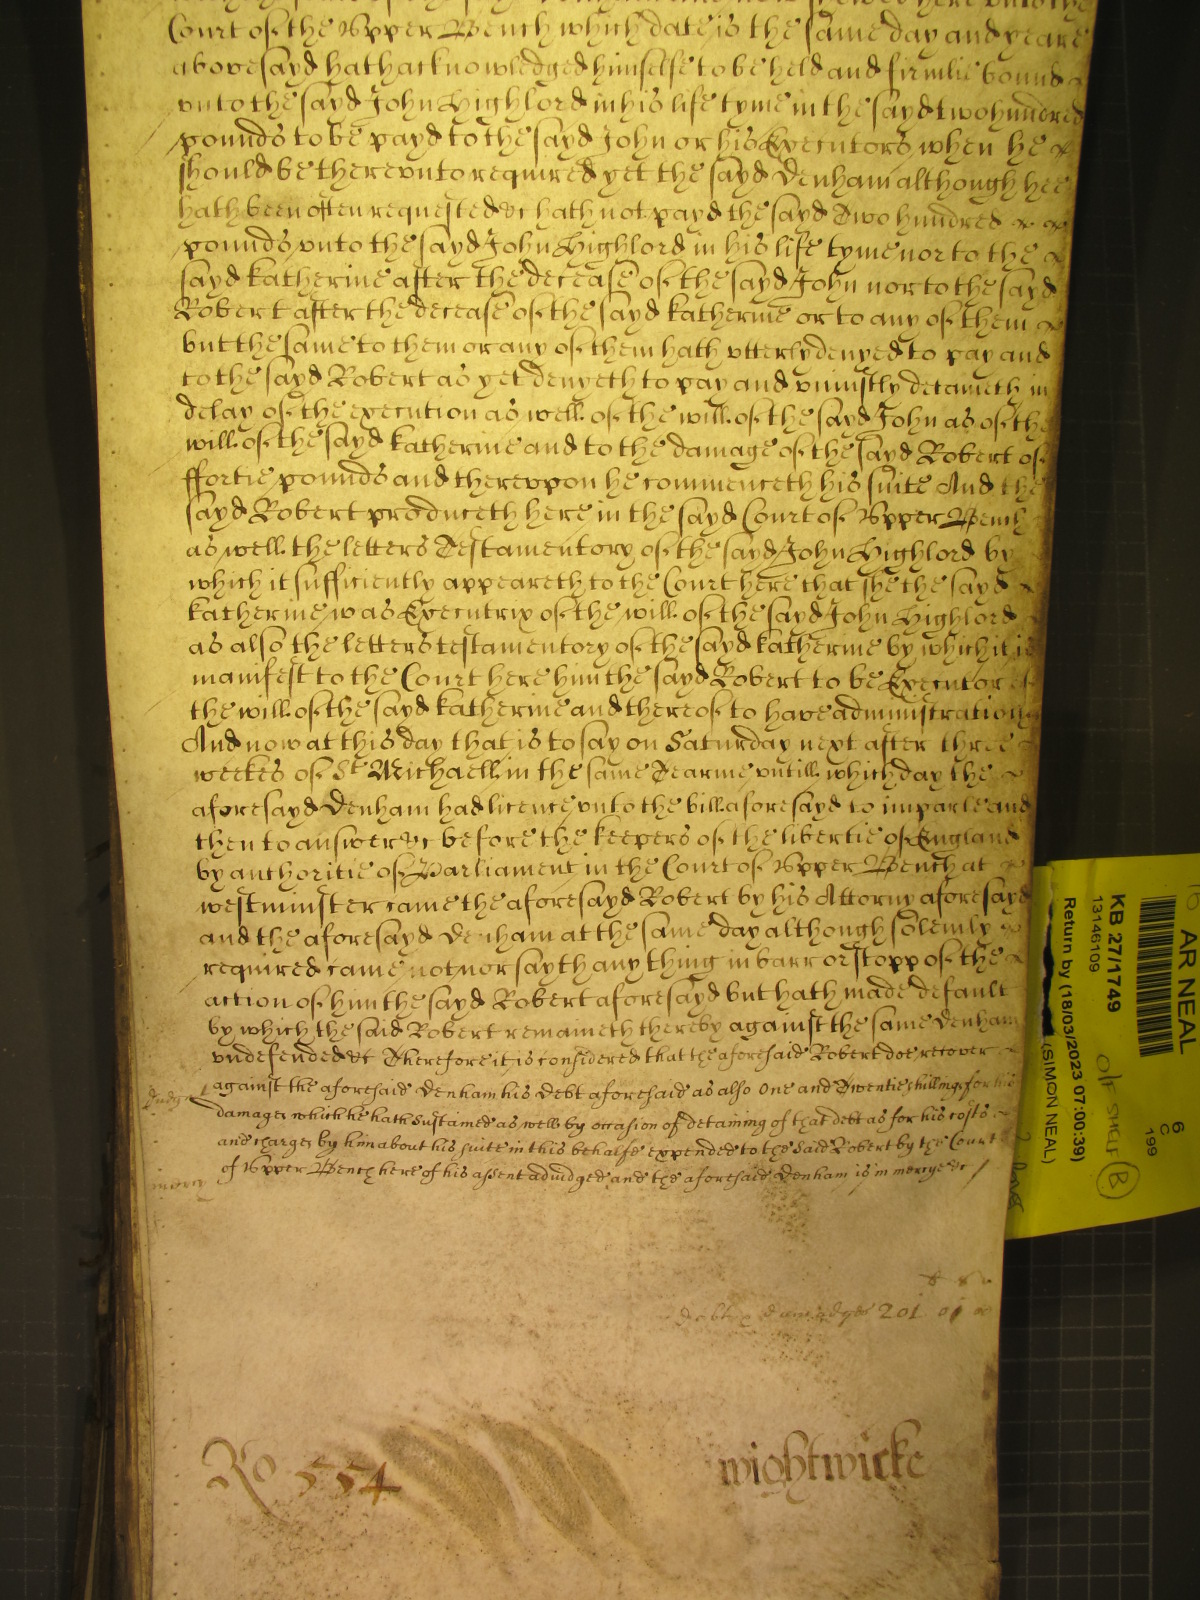 Court of the Upper Bench which date is the same day and yeare
abovesayd hath acknowledged himselfe to be held and firmlie bound
unto the sayd John Highlord in his life tyme in the sayd two hundred
pounds to be payd to the sayd John or his Executors when he
should be thereunto required yet the sayd Denham although hee
hath been often requested &c hath not payd the sayd Two hundred
pounds unto the sayd John Highlord in his life tyme nor to the
sayd Katherine after the decease of the sayd John nor to the sayd
Robert after the decease of the sayd Katherine or to any of them
but the same to them or any of them hath utterly denyed to pay and
to the sayd Robert as yet denyeth to pay and uniustly detaineth in
delay of the execution as well of the will of the sayd John as of the
will of the sayd Katherine and to the damage of the sayd Robert of
ffortie pounds and thereupon he commenceth his suite And the
sayd Robert produceth here in the sayd Court of Upper Bench
as well the letters Testamentory of the sayd John Highlord by
which it sufficiently appeareth to the Court here that she the sayd
Katherine was Executrix of the will of the sayd John Highlord
as also the letters testamentory of the sayd Katherine by which it is
manifest to the Court here him the sayd Robert to be Executor of
the will of the sayd Katherine and thereof to have administration
And now at this day that is to say on Saturday next after three
weekes of St Michaell in the same Tearme untill which day the
aforesayd Denham had licence unto the bill aforesayd to imparle and
then to answer &c before the keepers of the libertie of England
by authoritie of Parliament in the Court of Upper Bench at
westminster came the aforesayd Robert by his Attorny aforesayd
and the aforesayd Denham at the same day although solemly
required came not nor sayth any thing in barr or stopp of the
action of him the sayd Robert aforesayd but hath made default
by which the said Robert remaineth thereby against the same Denham
undefended &c Therefore it is considered that the aforesaid Robert doe recover
against the aforesaid Denham his Debt aforesaid as also One and Twentie shillings for his
damages which he hath sustained as well by occasion of detaining of that debt as for his costs
and charges by him about his suite in this behalfe expended to the said Robert by the Court
of Upper Bench here of his assent adiudged and the aforesaid Denham is in mercye &c
debt & damadges 201 01
Ro 554
wightwicke
AR NEAL
KB 27/1749
13146109
Return by (18/03/2023 07:00:39)
(SIMON NEAL)
O/F SHELF
B
6
C
199